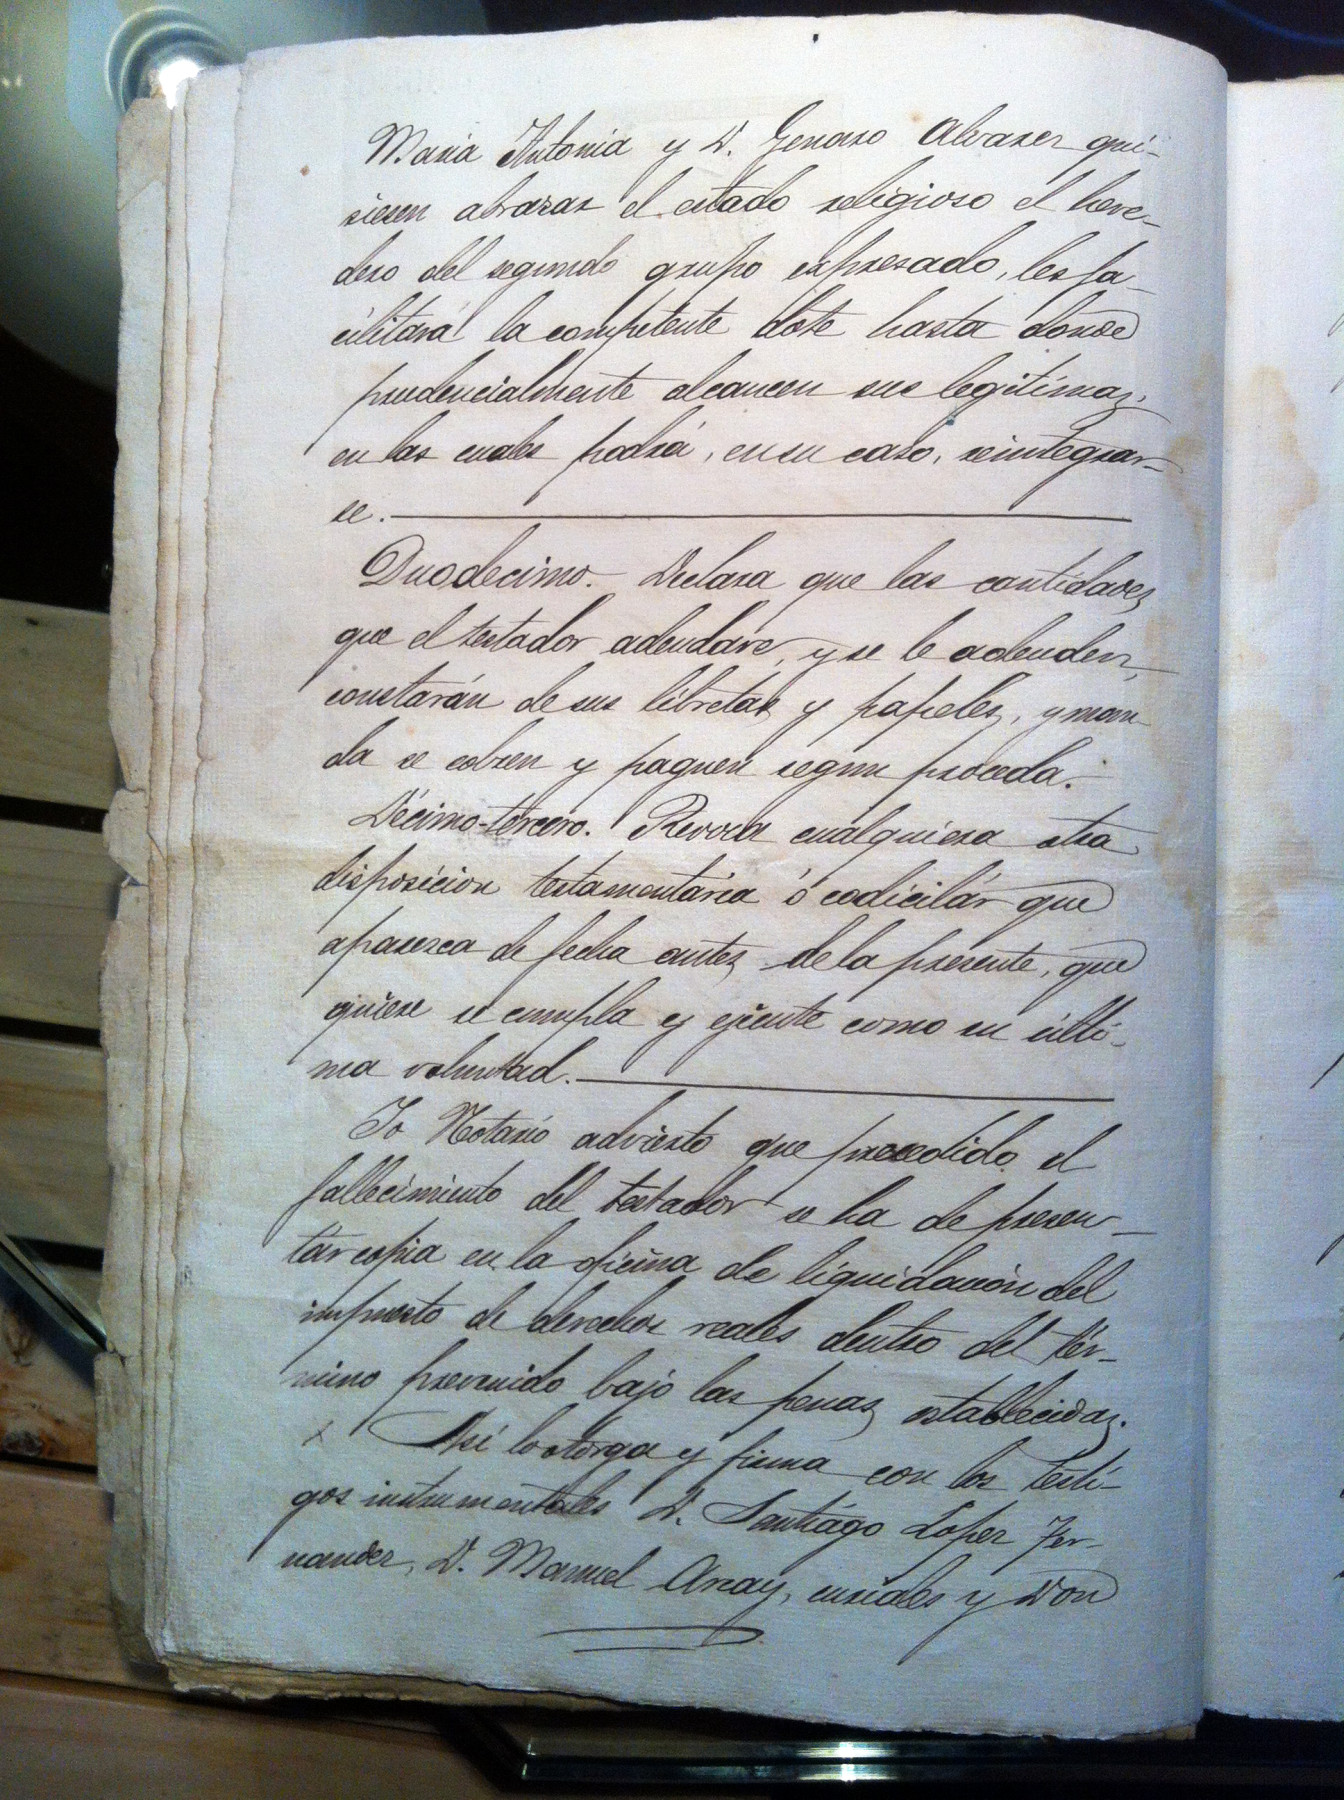 Maria Antonia y D. Genaro Alvarez qui-
siesen abrazar el estado religioso el here-
dero del segundo grupo expresado, les fa-
cilitará la competente dote hasta donde
prudencialmente alcancen sus legitimas,
en las cuales podrá, en su caso, reintegrar-
se.
Duodecimo. Declara que las cantidades
que el testador adeudare, y se le adeuden,
constarán de sus libretas y papeles, y man-
da se cobren y paguen segun proceda.
Décimo-tercero. Revoca cualquiera otra
disposicion testamentaria ó codicilár que
aparezca de fecha antes de la presente, que
quiere se cumpla y ejecute como su últi-
ma voluntad.
Yo Notario advierto que precedido el
fallecimiento del testador se ha de presen-
tar copia en la oficina de liquidación del
impuesto de derechos reales dentro del tér-
mino prevenido bajo las penas establecidas.
Asi lo otorga y firma con los testi-
gos instrumentales D. Santiágo Lopez Fer-
nandez, D. Manuel Aray, curiales y Don